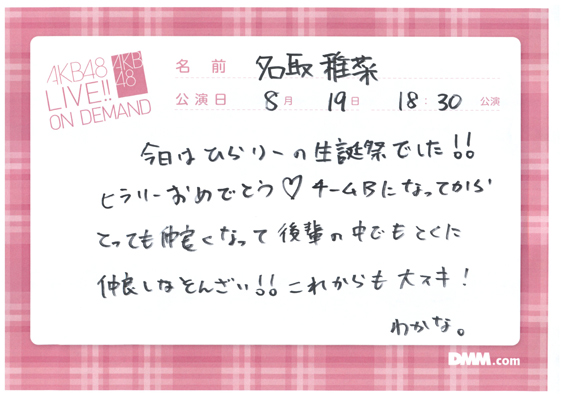 AKB48
LIVE!!
ON DEMAND
AKB
48
名前 名取稚菜
公演日 8月 19日 18:30 公演
今日はひらりーの生誕祭でした!!
ヒラリーおめでとう♡チームBになってから
とっても仲良くなって後輩の中でもとくに
仲良しなそんざい!!これからも大スキ!
わかな。
DMM.com